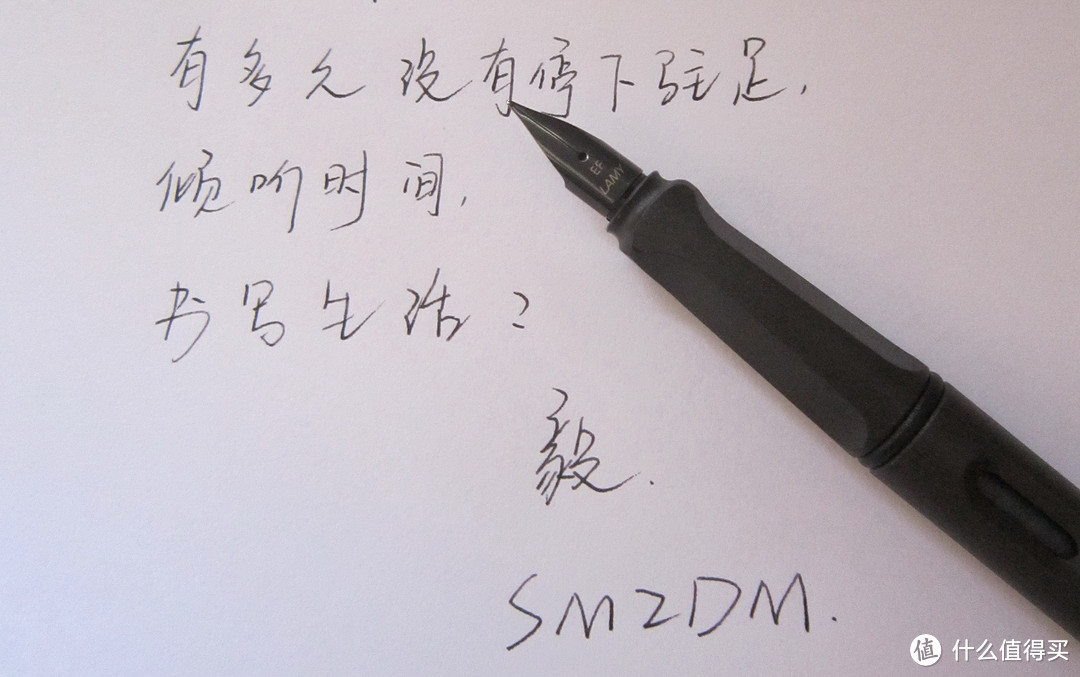 有多久没有停下驻足,
倾听时间,
书写生活?
毅.
SMZDM.
EF
LAMY
值 什么值得买